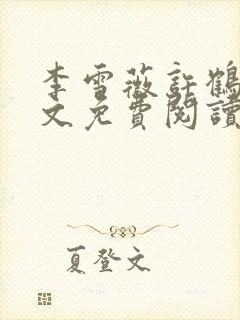 李雪薇許鶴
文免費閱讀
夏登文